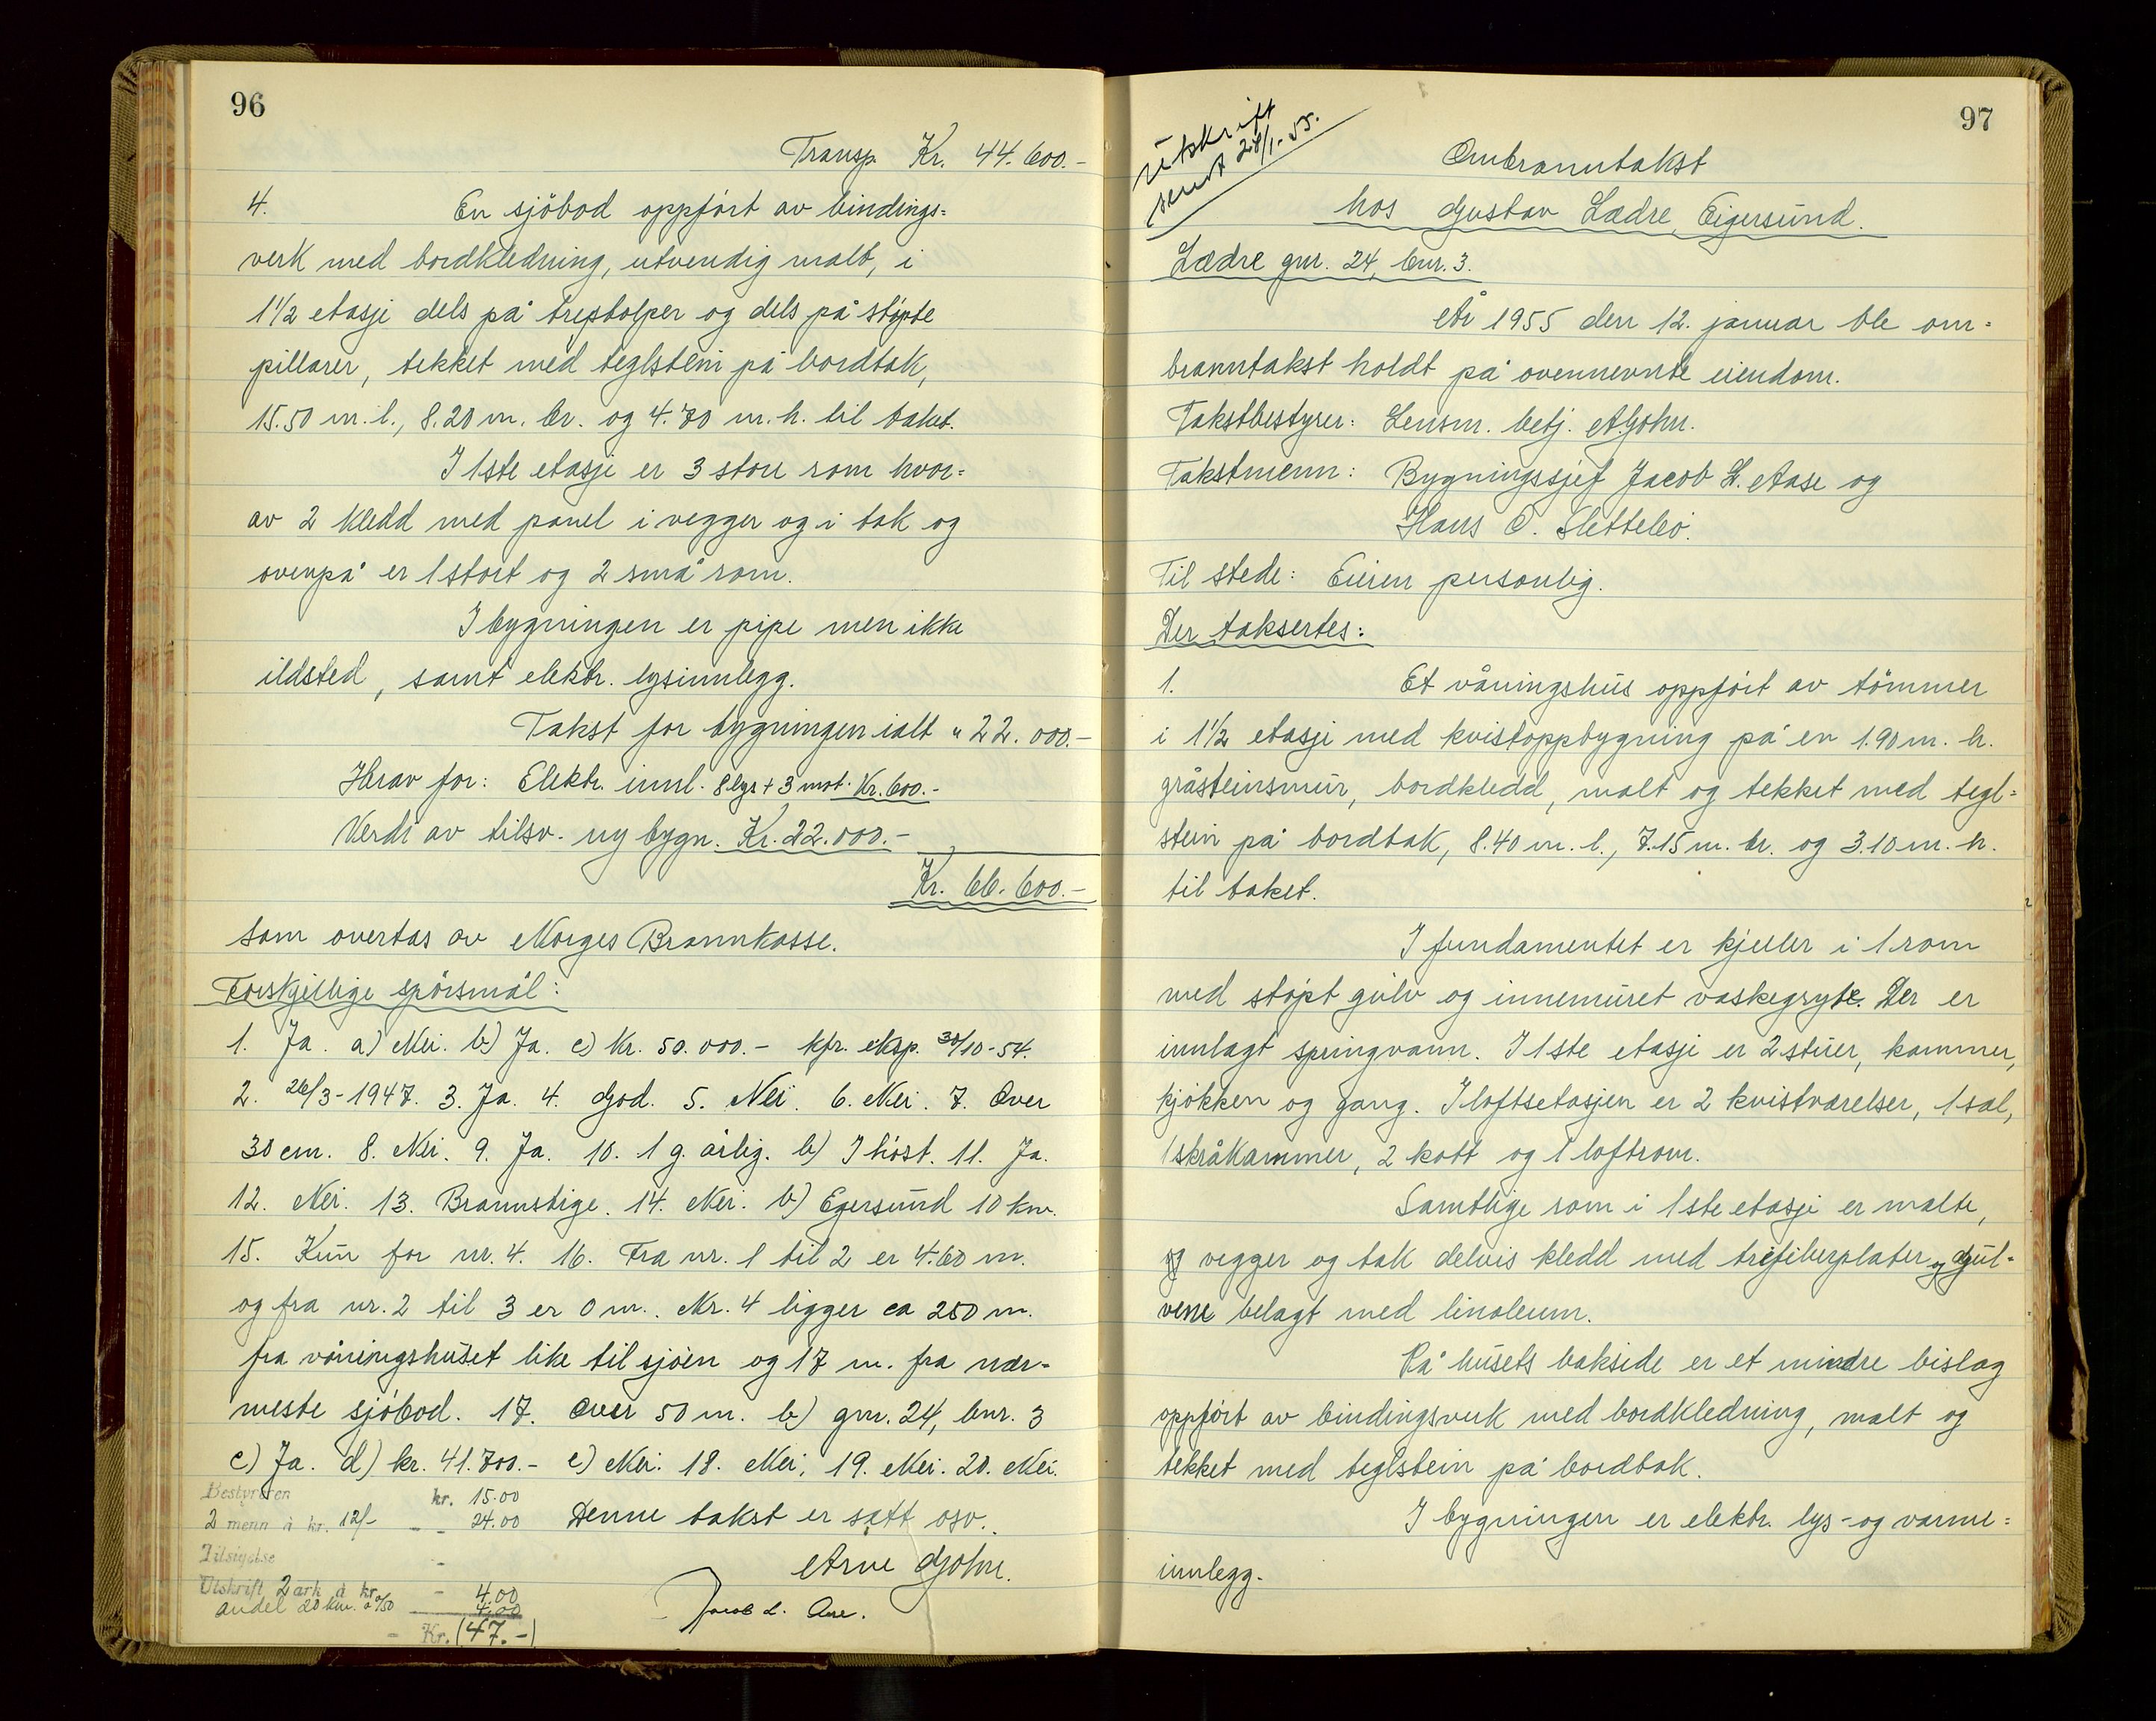 96
Transp. Kr. 44.600.-
4. En sjöbod oppfört av bindings=
verk med bordkledning, utvendig malt, i
1 1/2 etasje dels på trestolper og dels på støpte
pillarer, tekket med teglstein på bordtak,
15.50 m. l., 8.20 m. br. og 4.70 m. h. til taket.
I 1ste etasje er 3 store rom hvor=
av 2 kledd med panel i vegger og i tak og
ovenpå er 1 stort og 2 små rom.
I bygningen er pipe men ikke
ildsted, samt elektr. lysinnlegg.
Takst for bygningen ialt " 22.000.-
Herav for: Elektr. innl. 8 lys + 3 mot. Kr. 600.-
Verdi av tilsv. ny bygn. Kr. 22.000.-
Kr. 66.600.-
som overtas av Norges Brannkasse.
Forskjellige spörsmål:
1. Ja. a) Nei. b) Ja. c) Kr. 50.000.- kfr. eksp. 30/10-54.
2. 26/3-1947. 3. Ja. 4. God. 5. Nei. 6. Nei. 7. Over
30 cm. 8. Nei. 9. Ja. 10. 1 g. årlig. b) I höst. 11. Ja.
12. Nei. 13. Brannstige. 14. Nei. b) Egersund 10 km.
15. Kun for nr. 4. 16. Fra nr. 1 til 2 er 4.60 m.
og fra nr. 2 til 3 er 0 m. Nr. 4 ligger ca 250 m.
fra våningshuset like til sjöen og 17 m. fra nær-
meste sjöbod. 17. Over 50 m. b) gnr. 24, bnr. 3
c) Ja. d) kr. 41.700.- e) Nei. 18. Nei. 19. Nei. 20. Nei.
Bestyreren kr. 15.00
2 menn à kr. 12/- - - 24.00
Denne takst er satt osv.
Tilsigelse -
Arne Gjöhn.
Utskrift 2 ark à kr. - 4.00
andel 20 km. à 0/50 4.00
Jacob L. Aase.
- Kr. (47.-)
97
Utskrift
sendt 28/1-55.
Ombranntakst
hos Gustav Lædre, Eigersund.
Lædre gnr. 24, bnr. 3.
År 1955 den 12. januar ble om=
branntakst holdt på ovennevnte eiendom.
Takstbestyrer: Lensm. betj. A. Gjöhn.
Takstmenn: Bygningssjef Jacob L. Aase og
Hans O. Slettebö.
Til stede: Eieren personlig.
Der taksertes:
1. Et våningshus oppfört av tömmer
i 1 1/2 etasje med kvistoppbygning på en 1.90 m. h.
gråsteinsmur, bordkledd, malt og tekket med tegl=
stein på bordtak, 8.40 m. l., 7.15 m. br. og 3.10 m. h.
til taket.
I fundamentet er kjeller i 1 rom
med støpt gulv og innemuret vaskegryte. Der er
innlagt springvann. I 1ste etasje er 2 stuer, kammer,
kjökken og gang. I loftsetasjen er 2 kvistværelser, 1 sal,
1 skråkammer, 2 kott og 1 loftrom.
Samtlige rom i 1ste etasje er malte,
og vegger og tak delvis kledd med trefiberplater og gul=
vene belagt med linoleum.
På husets bakside er et mindre bislag
oppfört av bindingsverk med bordkledning, malt og
tekket med teglstein på bordtak.
I bygningen er elektr. lys- og varme=
innlegg.